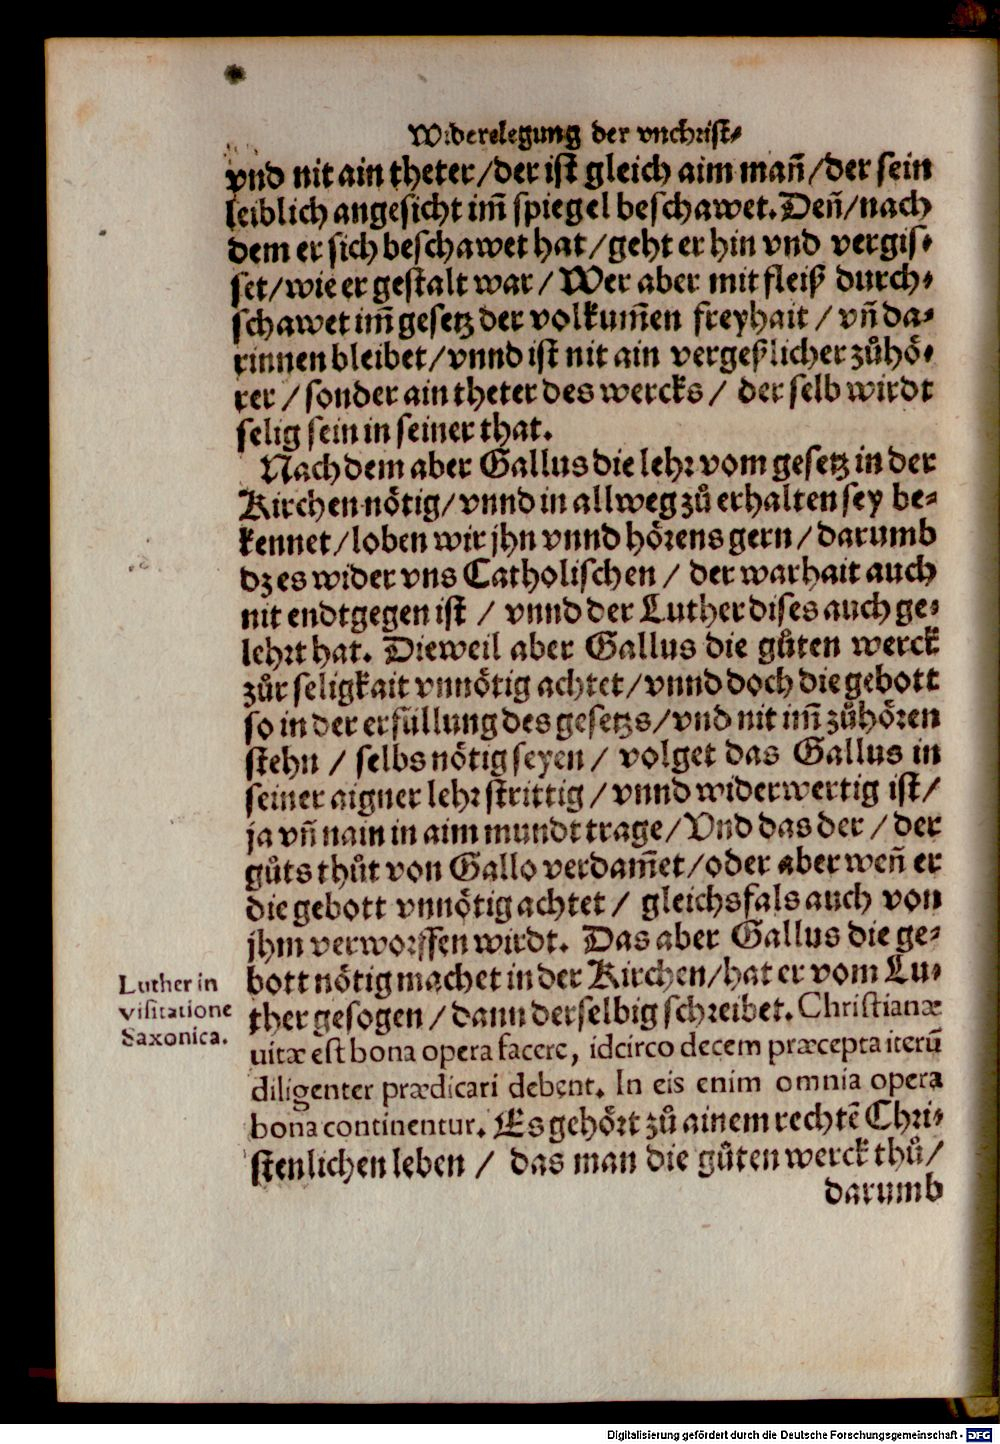 Widerelegung der vnchrist⸗
vnd nit ain theter/der ist gleich aim mañ/der sein
leiblich angesicht im̃ spiegel beschawet. Deñ/nach
dem er sich beschawet hat/geht er hin vnd vergis⸗
set/wie er gestalt war/ Wer aber mit fleiß durch⸗
schawet im̃ gesetz der volkum̃en freyhait / vñ da⸗
rinnen bleibet/vnnd ist nit ain vergeßlicher zůhö⸗
rer / sonder ain theter des wercks / der selb wirdt
selig sein in seiner that.
Nach dem aber Gallus die lehr vom gesetz in der
Kirchen nötig/vnnd in allweg zů erhalten sey be⸗
kennet/loben wir jhn vnnd hörens gern/darumb
dz es wider vns Catholischen / der warhait auch
nit endtgegen ist / vnnd der Luther dises auch ge⸗
lehrt hat. Dieweil aber Gallus die gůten werck
zůr seligkait vnnötig achtet/vnnd doch die gebott
so in der erfüllung des gesetzs/vnd nit im̃ zůhören
stehn / selbs nötig seyen / volget das Gallus in
seiner aigner lehr strittig/vnnd widerwertig ist/
ja vñ nain in aim mundt trage/Vnd das der / der
gůts thůt von Gallo verdam̃et/oder aber weñ er
die gebott vnnötig achtet/ gleichsfals auch von
jhm verworffen wirdt. Das aber Gallus die ge⸗
bott nötig machet in der Kirchen/hat er vom Lu⸗
ther gesogen/dann derselbig schreibet. Christianæ
uitæ est bona opera facere, idcirco decem præcepta iterũ
diligenter prædicari debent. In eis enim omnia opera
bona continentur. Es gehört zů ainem rechtẽ Chri⸗
stenlichen leben / das man die gůten werck thů/
darumb
Luther in
visitatione
Saxonica.
Digitalisierung gefördert durch die Deutsche Forschungsgemeinschaft - DFG